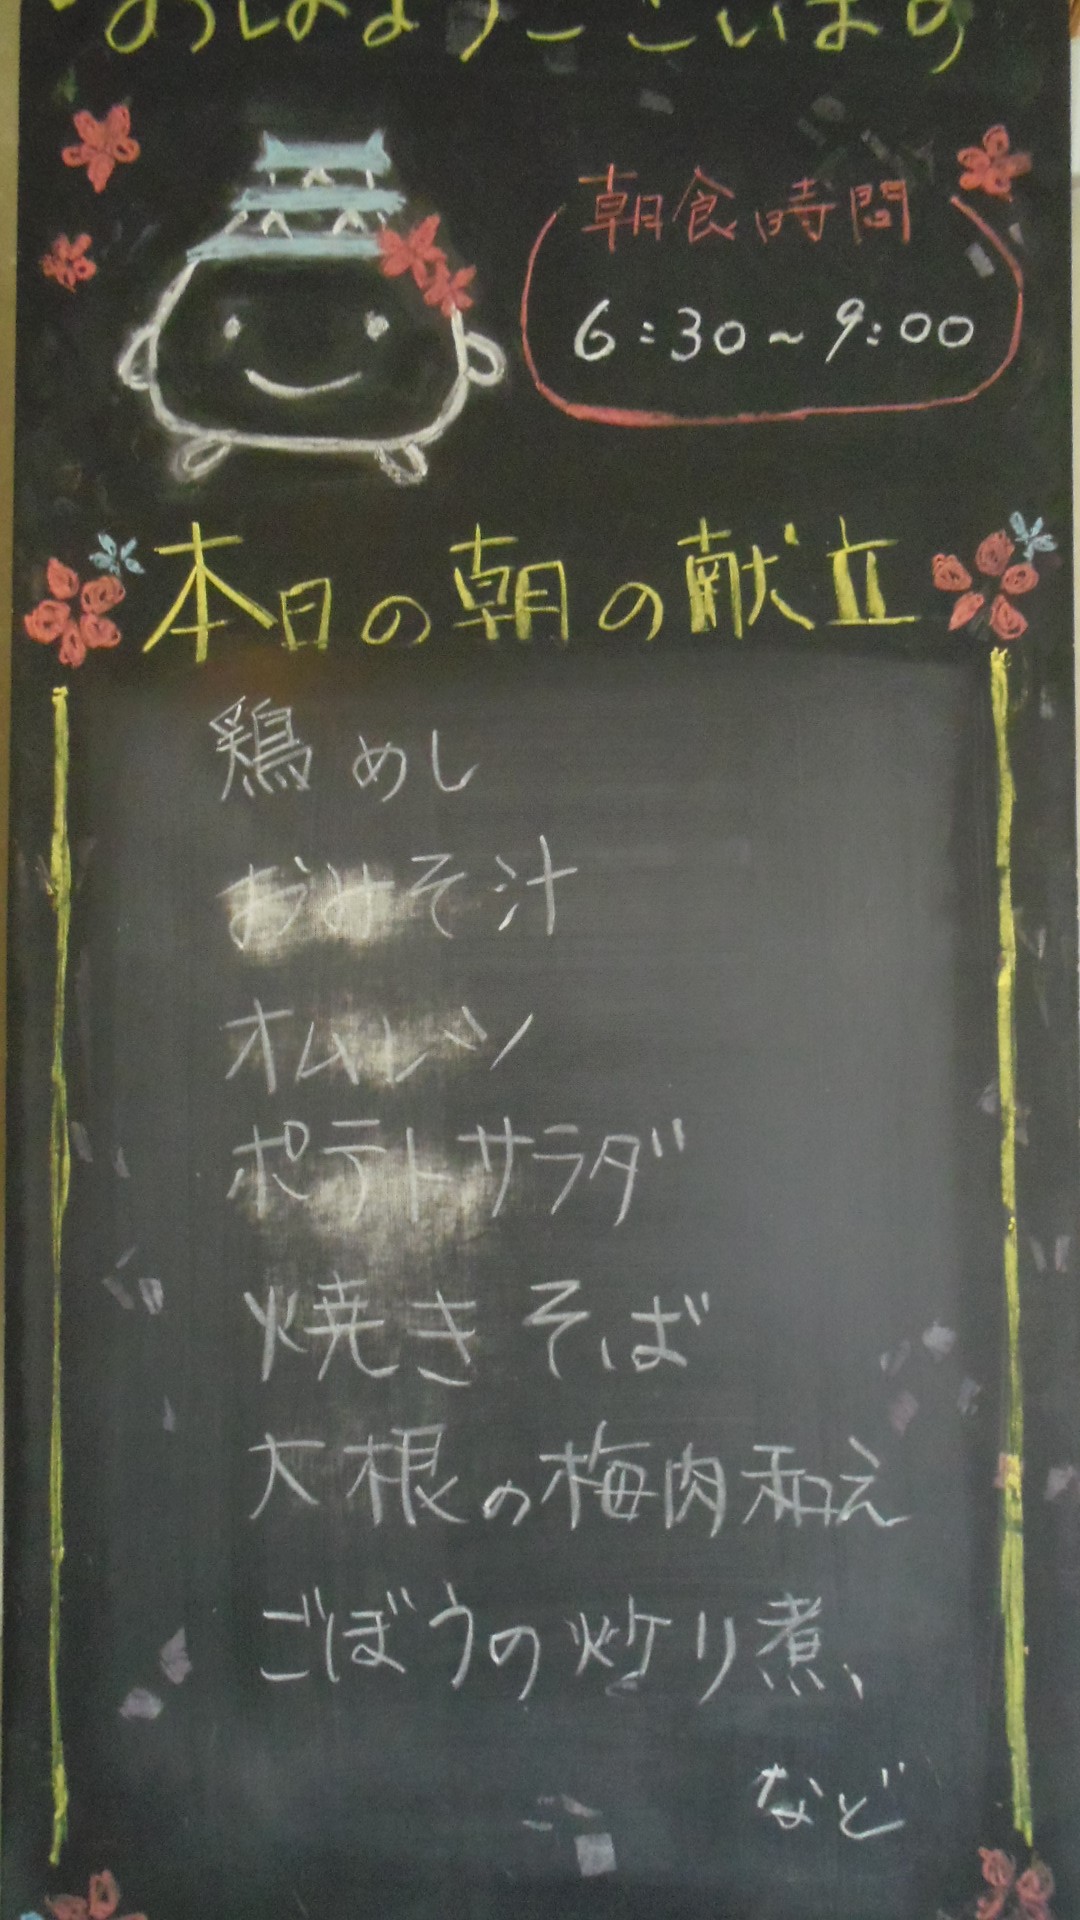 おはようございます
朝食時間
6:30~9:00
本日の朝の献立
鶏めし
おみそ汁
オムレツ
ポテトサラダ
焼きそば
大根の梅肉和え
ごぼうの炒り煮、
など